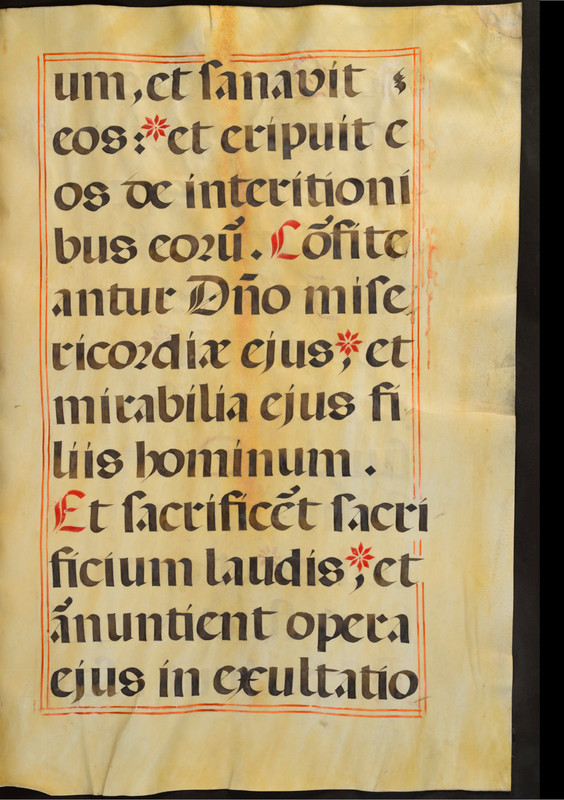 um, et ſanavit
eos:* et eripuit e
os de interitioni
bus eoꝛū. Cōfite
antur Dño miſe
ricoꝛdiæ ejus;* et
mirabilia ejus fi
liis hominum.
Et ſacrificēt ſacri
ficium laudis;* et
ānuntient opera
ejus in exultatio